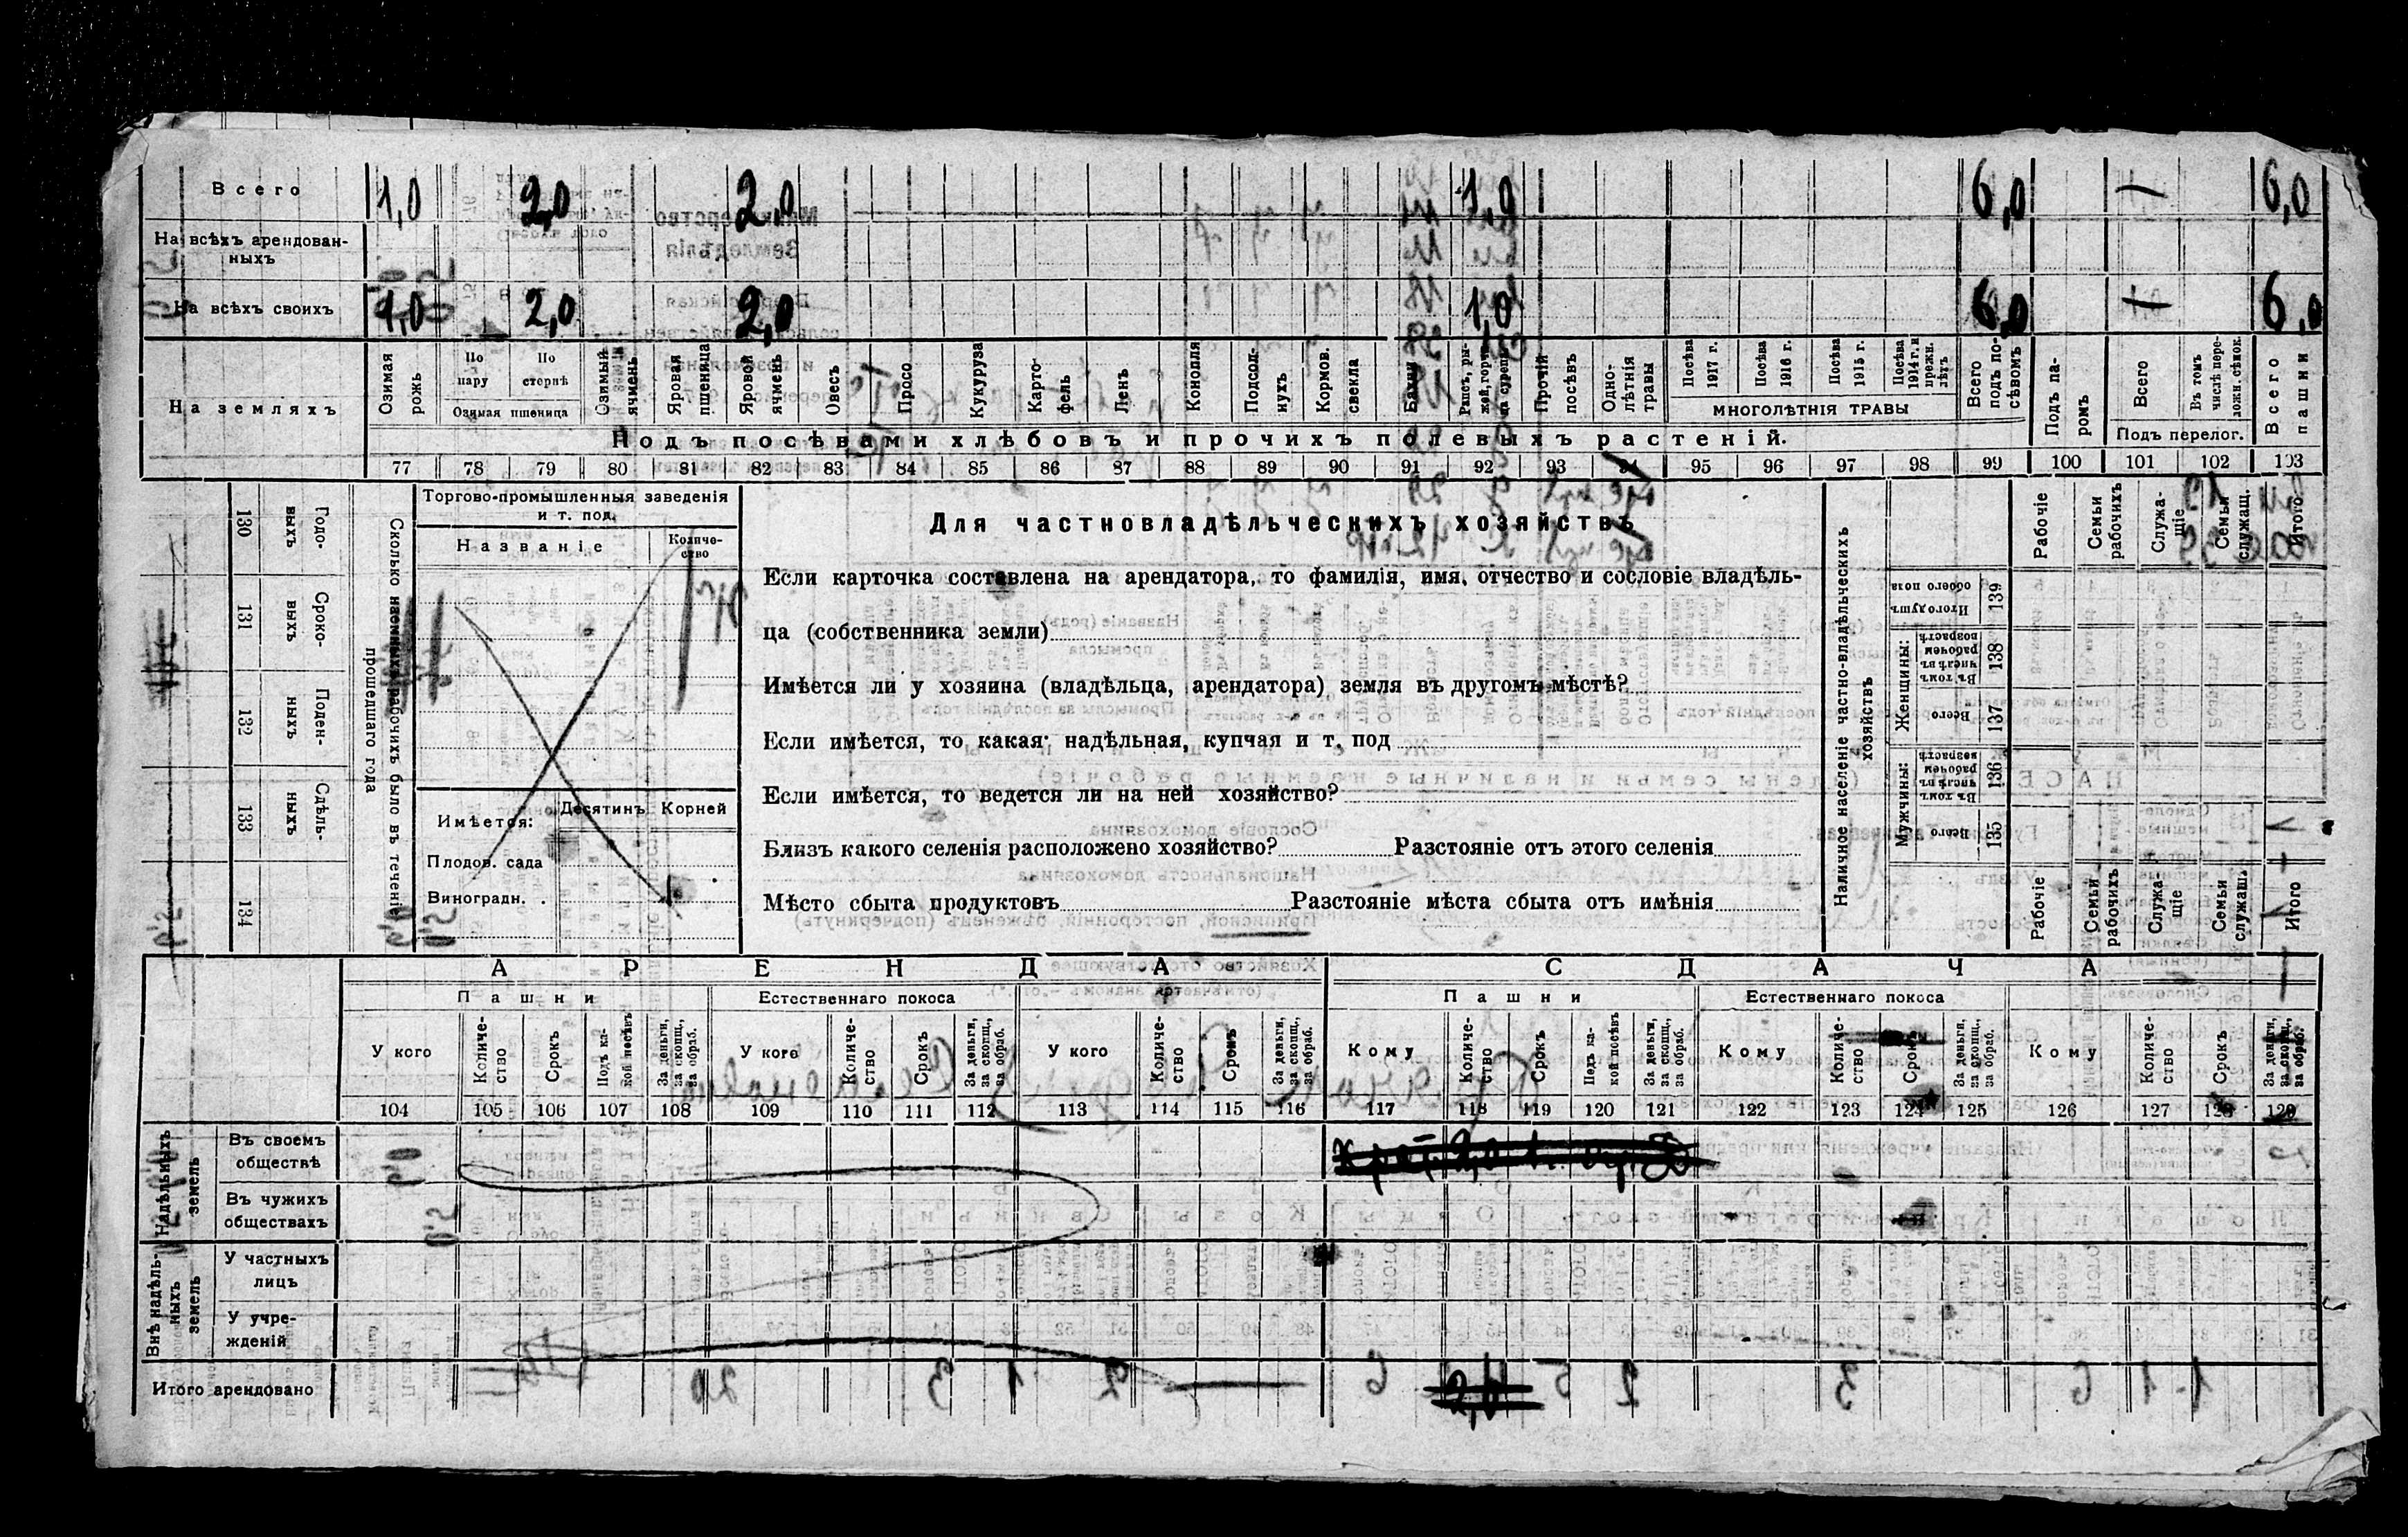 Всего 1,0 2,0 2,0 1,0 6,0 — 6,0
На всѣхъ арендован-
ныхъ
На всѣхъ своихъ 1,0 2,0 2,0 1,0 6,0 — 6,0
На земляхъ
Озимая рожь
По пару
По стернѣ
Озимая пшеница
Озимый ячмень
Яровая пшеница
Яровой ячмень
Овесъ
Просо
Кукуруза
Карто-
фель
Ленъ
Конопля
Подсол-
нухъ
Кормов.
свекла
Бахчи
Рапсъ, ры-
жей, горчи-
ца сурепа
Прочій
посѣвъ
Одно-
лѣтнія
травы
Посѣва
1917 г.
Посѣва
1916 г.
Посѣва
1915 г.
Посѣва
1914 г. и
прежн.
лѣтъ
МНОГОЛѢТНІЯ ТРАВЫ
Всего
подъ по-
сѣвомъ
Подъ па-
ромъ
Всего
Въ томъ
числѣ пере-
ложн. сѣнок.
Подъ перелог.
Всего
пашни
Подъ посѣвами хлѣбовъ и прочихъ полевыхъ растеній.
77 78 79 80 81 82 83 84 85 86 87 88 89 90 91 92 93 94 95 96 97 98 99 100 101 102 103
Сколько наемныхъ рабочихъ было въ теченіе
прошедшаго года
Годо-
выхъ
130
Сроко-
выхъ
131
Поден-
ныхъ
132
Сдѣль-
ныхъ
133
134
Торгово-промышленныя заведенія
и т. под.
Названіе
Количе-
ство
Имѣется:
Десятинъ
Корней
Плодов. сада
Виноградн. .
Для частновладѣльческихъ хозяйствъ
Если карточка составлена на арендатора, то фамилія, имя, отчество и сословіе владѣль-
ца (собственника земли)
Имѣется ли у хозяина (владѣльца, арендатора) земля въ другомъ мѣстѣ?
Если имѣется, то какая: надѣльная, купчая и т. под
Если имѣется, то ведется ли на ней хозяйство?
Близъ какого селенія расположено хозяйство? Разстояніе отъ этого селенія
Мѣсто сбыта продуктовъ Разстояніе мѣста сбыта отъ имѣнія
Наличное населеніе частно-владѣльческихъ
хозяйствъ
Рабочіе
Семьи
рабочихъ
Служа-
щіе
Семьи
служащ.
Итого
Итого душъ
обоего пола
139
Женщины:
Въ томъ
числѣ въ
рабочемъ
возрастѣ
138
Всего
137
Мужчины:
Въ томъ
числѣ въ
рабочем
возрастѣ
136
Всего
135
Рабочіе
Семьи
рабочихъ
Служа-
щіе
Семьи
служащ.
Итого
АРЕНДА
СДАЧА
Пашни
Естественнаго покоса
Пашни
Естественнаго покоса
У кого
Количе-
ство
Срокъ
Подъ ка-
кой посѣвъ
За деньги,
за скопщ.,
за обраб.
У кого
Количе-
ство
Срокъ
За деньги,
за скопщ.,
за обраб.
У кого
Количе-
ство
Срокъ
За деньги,
за скопщ.,
за обраб.
Кому
Количе-
ство
Срокъ
Подъ ка-
кой посѣвъ
За деньги,
за скопщ.,
за обраб.
Кому
Количе-
ство
Срокъ
За деньги,
за скопщ.,
за обраб.
Кому
Количе-
ство
Срокъ
За деньги,
за скопщ.,
за обраб.
104 105 106 107 108 109 110 111 112 113 114 115 116 117 118 119 120 121 122 123 124 125 126 127 128 129
Надѣльныхъ
земель
Въ своемъ
обществѣ
Въ чужихъ
обществахъ
Внѣ надѣль-
ныхъ
земель
У частныхъ
лицъ
У учре-
жденій
Итого арендовано 2,0